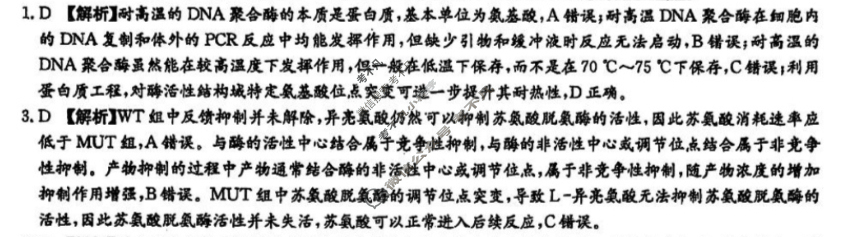 1. D 【解析】耐高温的 DNA 聚合酶的本质是蛋白质,基本单位为氨基酸,A 错误;耐高温 DNA 聚合酶在细胞内
的 DNA 复制和体外的 PCR 反应中均能发挥作用,但缺少引物和缓冲液时反应无法启动,B 错误;耐高温的
DNA 聚合酶虽然能在较高温度下发挥作用,但一般在低温下保存,而不是在 70 ℃～75 ℃下保存,C 错误;利用
蛋白质工程,对酶活性结构域特定氨基酸位点突变可进一步提升其耐热性,D 正确。
3. D 【解析】WT 组中反馈抑制并未解除,异亮氨酸仍然可以抑制苏氨酸脱氨酶的活性,因此苏氨酸消耗速率应
低于 MUT 组,A 错误。与酶的活性中心结合属于竞争性抑制,与酶的非活性中心或调节位点结合属于非竞争
性抑制。产物抑制的过程中产物通常结合酶的非活性中心或调节位点,属于非竞争性抑制,随产物浓度的增加
抑制作用增强,B 错误。MUT 组中苏氨酸脱氨酶的调节位点突变,导致 L-异亮氨酸无法抑制苏氨酸脱氨酶的
活性,因此苏氨酸脱氨酶活性并未失活,苏氨酸可以正常进入后续反应,C 错误。